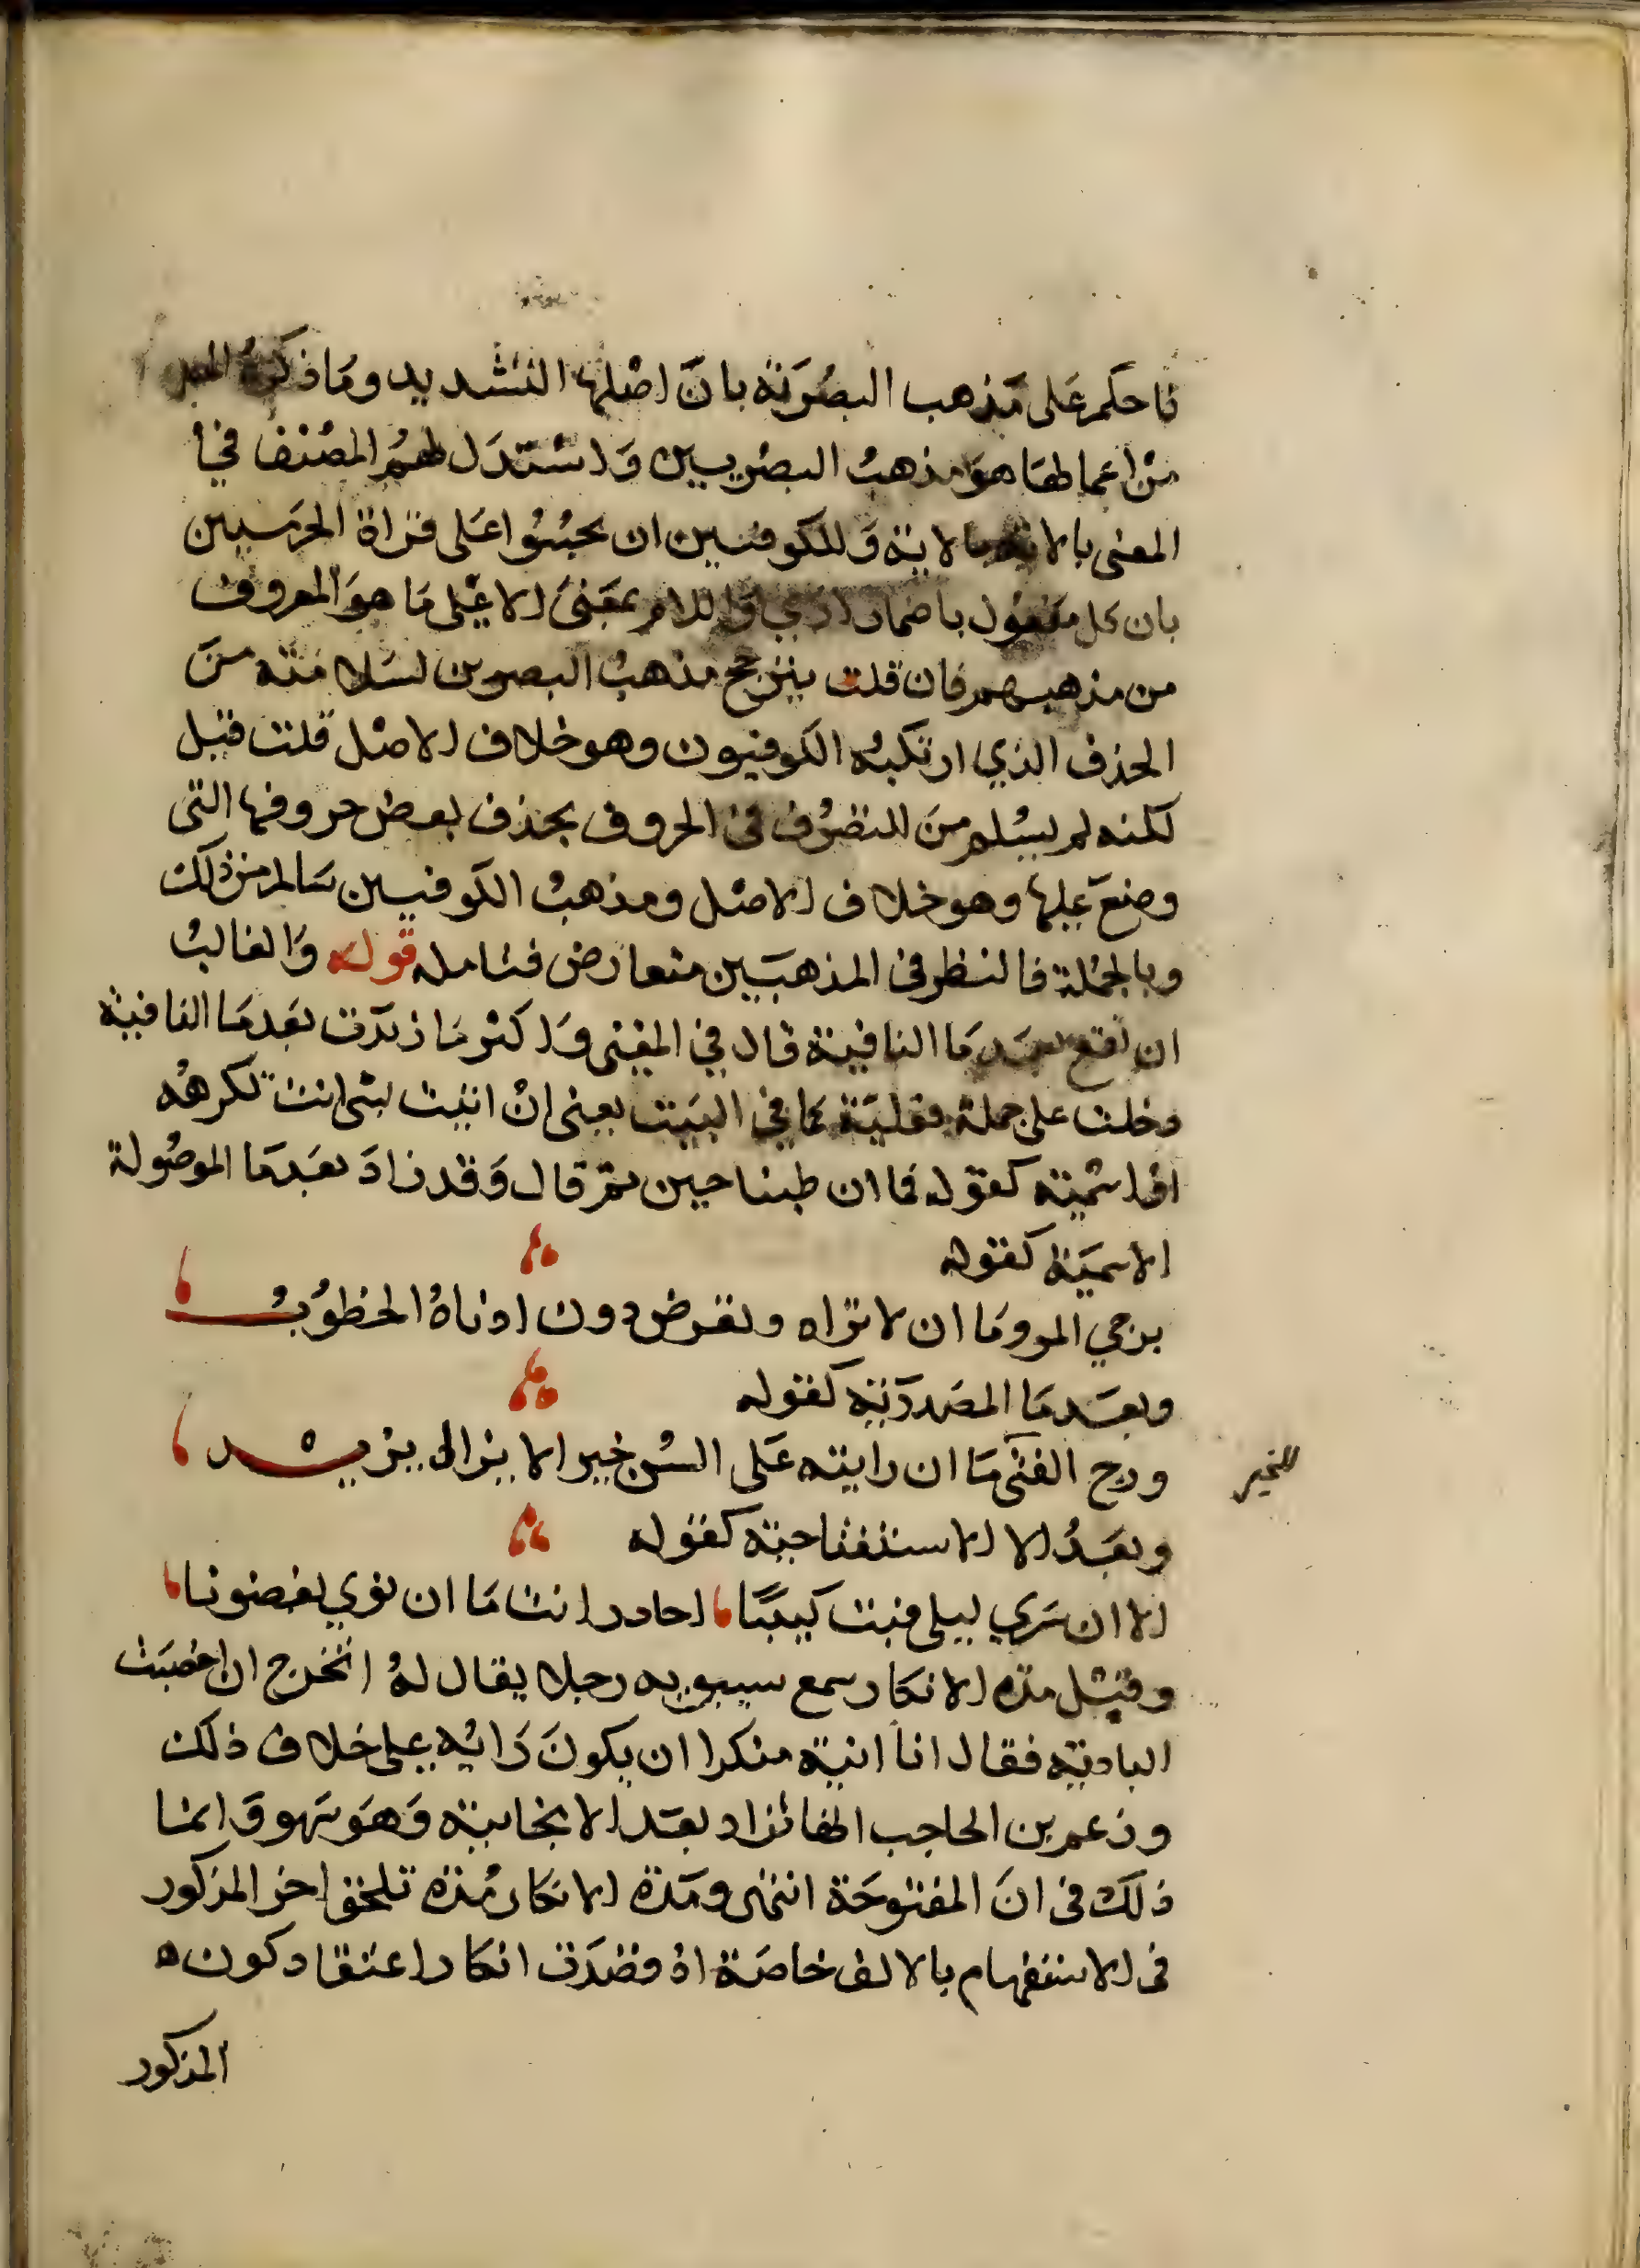 نا حكم على مذهب البصرية بان اصلها التشديد وما ذكره
من اعمالها هو مذهب البصريين واستدل لهم المصنف في
المعنى بالاية وللكوفيين ان يجيبوا على قراة الحرميين
بان كل مفعول باضمار اري واللام بمعنى الا على ما هو المعروف
من مذهبهم فان قلت يترجح مذهب البصرين لسلامته من
الحذف الذي ارتكبه الكوفيون وهو خلاف الاصل قلت قبل
لكنه لم يسلم من التصرف في الحروف بحذف بعض حروفها التي
وضع عليها وهو خلاف الاصل ومذهب الكوفيين سالم من ذلك
وبالجملة فالنظر في المذهبين متعارض فتامله قوله والغالب
ان تقع بعد ما النافية قال في المغنى واكثر ما زيدت بعد ما النافية
دخلت على جملة فعلية كما في البيت يعنى ان اتيت بشى انت تكرهه
او اسمية كقوله فما ان طبنا حين ثم قال وقد تزاد بعد ما الموصولة
الاسمية كقوله
يرجي المرو ما ان لا تراه وتعرض دون ادناه الخطوب
وبعد ما المصدرية كقوله
ورج الفتى ما ان رايته على السن خيرا لا يزال يزيد
للخير
وبعد الا الاستفتاحية كقوله
الا ان سري ليلى فبت كييبا احادر انت ما ان نوي بغضونا
وقبل مدة الانكار سمع سيبويه رجلا يقال له اتخرج ان اخصبت
البادية فقال انا انيه منكرا ان يكون رايه على خلاف ذلك
وزعم بن الحاجب انها تزاد بعد الايجابية وهو سهو وانما
ذلك في ان المفتوحة انتهى ومدة الانكار مدة تلحق اخر المذكور
في الاستفهام بالالف خاصة اذ قصدت انكار اعتقاد كون
المذكور